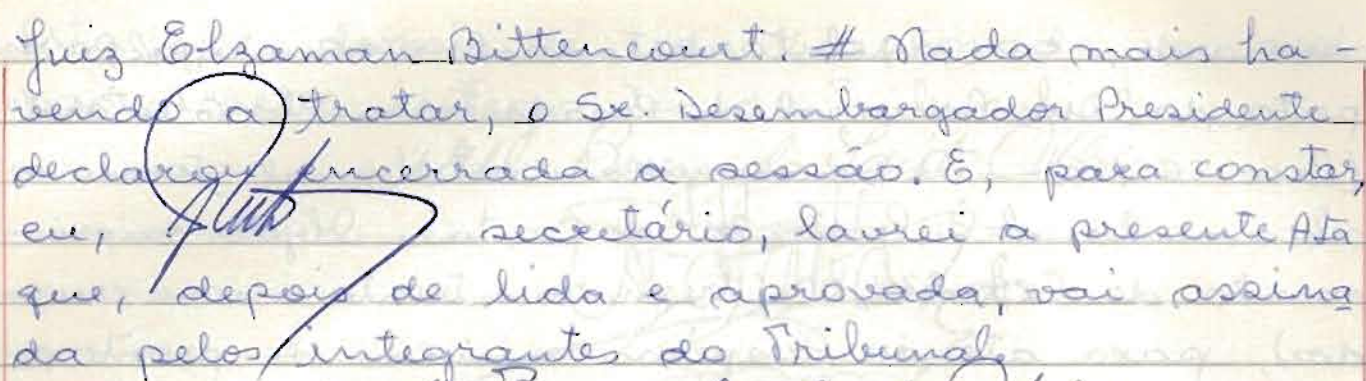 Juiz Elzaman Bittencourt. # Nada mais ha-
vendo a tratar, o Sr. Desembargador Presidente
declarou encerrada a sessão. E, para constar,
eu, secretário, lavrei a presente Ata
que, depois de lida e aprovada, vai assina
da pelos integrantes do Tribunal